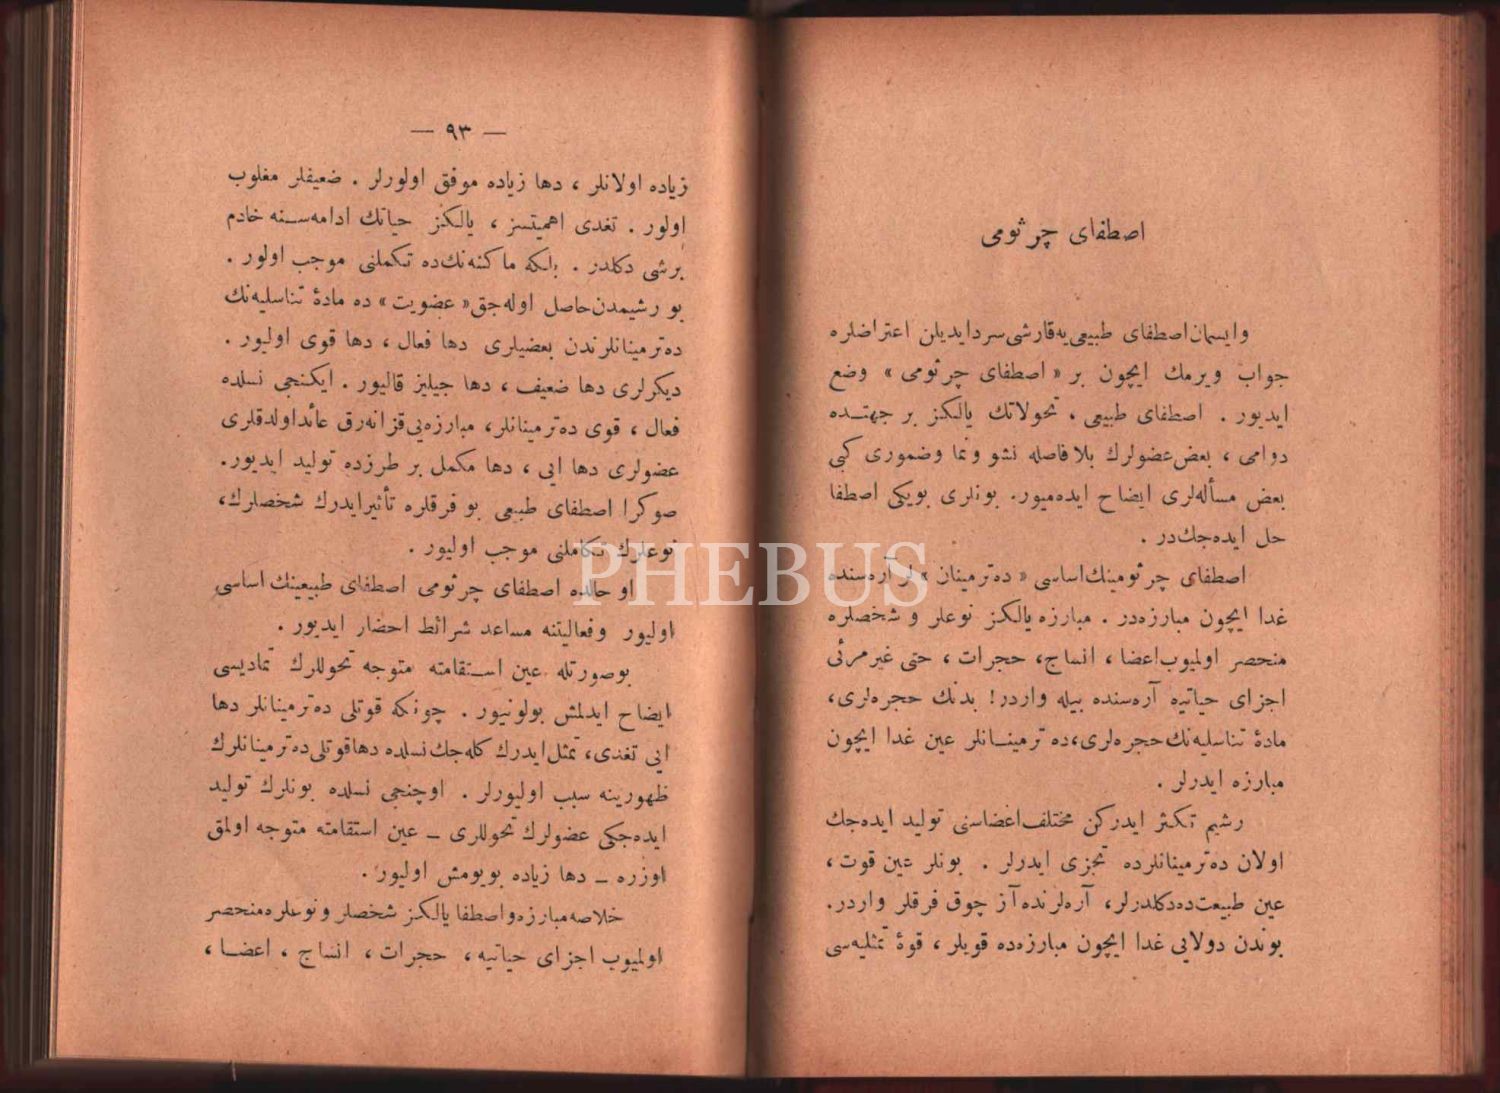 اصطفای چرثومی
وایسمان اصطفای طبیعی‌یه قارشی سرد ایدیلن اعتراضلره
جواب ویرمك ایچون بر « اصطفای چرثومی » وضع
ایدیور . اصطفای طبیعی ، تحولاتك یالكز بر جهتـده
دوامی ، بعض عضولرك بلا فاصله نشو ونما وضموری كبی
بعض مسأله‌لری ایضاح ایده‌میور. بونلری بویكی اصطفا
حل ایده‌جك‌در .
اصطفای چرثومینك اساسی « ده‌ترمینان » لر آره‌سنده
غدا ایچون مبارزه‌در . مبارزه یالكز نوعلر و شخصلره
منحصر اولمیوب اعضا ، انساج، حجرات ، حتی غیرمرئی
اجزای حیاتیه آره‌سنده بیله واردر! بدنك حجره‌لری،
مادهٔ تناسلیه‌نك حجره‌لری،ده‌ترمینـانلر عین غدا ایچون
مبارزه ایدرلر .
رشیم تكثر ایدركن مختلف اعضاسنی تولید ایده‌جك
اولان ده‌ترمینانلرده تجزی ایدرلر . بونلر عین قوت ،
عین طبیعت‌ده‌دكلدرلر، آره‌لرنده آز چوق فرقلر واردر.
بوندن دولایی غدا ایچون مبارزه‌ده قویلر ، قوهٔ تمثلیه‌سی
— ٩٣ —
زیاده اولانلر ، دها زیاده موفق اولورلر . ضعیفلر مغلوب
اولور . تغدی اهمیتسز ، یالكز حیاتك ادامه‌سـنه خادم
برشی دكلدر . بلكه ماكنه‌نك‌ده تكملنی موجب اولور .
بو رشیمدن حاصل اوله‌جق « عضویت » ده مادهٔ تناسلیه‌نك
ده‌ترمینانلرندن بعضیلری دها فعال ، دها قوی اولیور .
دیكرلری دها ضعیف ، دها جیلیز قالیور . ایكنجی نسلده
فعال ، قوی ده‌ترمینانلر، مبارزه‌یی قزانه‌رق عائداولدقلری
عضولری دها ایی ، دها مكمل بر طرزده تولید ایدیور.
صوكرا اصطفای طبیعی بو فرقلره تأثیرایدرك شخصلرك،
نوعلرك تكاملنی موجب اولیور .
او حالده اصطفای چرثومی اصطفای طبیعینك اساسی
اولیور وفعالیتنه مساعد شرائط احضار ایدیور .
بوصورتله عین اسـتقامته متوجه تحوللرك تمادیسی
ایضاح ایدلمش بولونیور . چونكه قوتلی ده‌ترمینانلر دها
ایی تغدی، تمثل ایدرك كله‌جك نسلده دهاقوتلی ده‌ترمینانلرك
ظهورینه سبب اولیورلر . اوچنجی نسلده بونلرك تولید
ایده‌جكی عضولرك تحوللری ـ عین استقامته متوجه اولمق
اوزره ـ دها زیاده بویومش اولیور .
خلاصه مبارزه واصطفا یالكز شخصلر ونوعلره منحصر
اولمیوب اجزای حیاتیه ، حجرات ، انساج ، اعضـا ،
PHEBUS